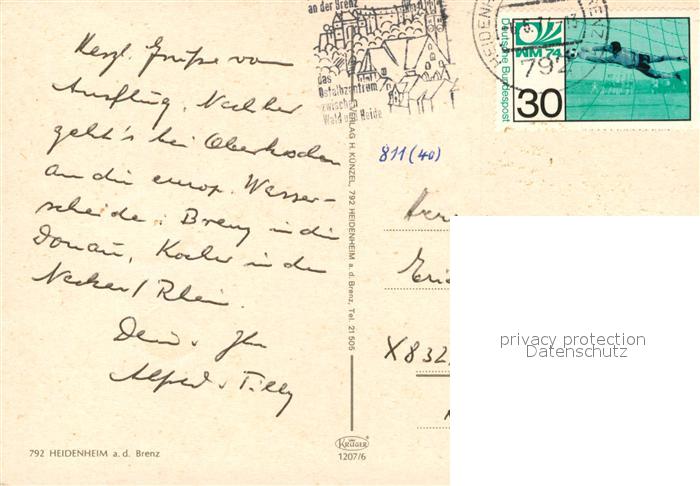 Herzl. Grüße vom
Ausflug. Nachher
geht's bei Oberkochen
an die europ. Wasser-
scheide: Brenz in die
Donau, Kocher in den
Neckar/Rhein.
Alfred + Tilly
792 HEIDENHEIM a. d. Brenz
an der Brenz
das
Ostalbzentrum
zwischen
Wald und Heide
VERLAG H. KÜNZEL, 792 HEIDENHEIM a. d. Brenz, Tel. 21 505
KRÜGER
1207/6
811(40)
792
WM 74
Deutsche Bundespost
30
X832
privacy protection
Datenschutz